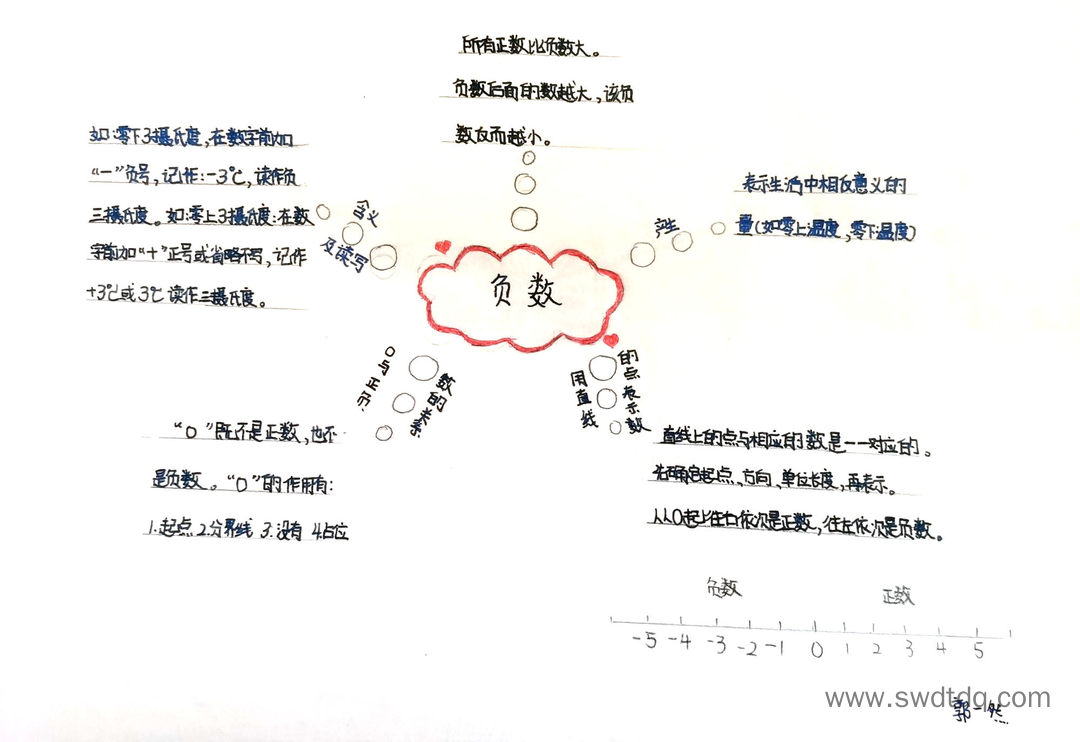 所有正数比负数大。
负数后面的数越大，该负
数反而越小。
如：零下3摄氏度，在数字前加
“一”负号，记作：-3℃，读作负
三摄氏度。如：零上3摄氏度：在数
字前加“+”正号或省略不写，记作
+3℃或3℃读作三摄氏度。
含义
及读写
产生
表示生活中相反意义的
量（如零上温度，零下温度）
负数
0与正负
数的关系
“0”既不是正数，也不
是负数。“0”的作用有：
1.起点 2.分界线 3.没有 4.占位
用直线
的点表示数
直线上的点与相应的数是一一对应的。
先确定起点、方向、单位长度，再表示。
从0起往右依次是正数，往左依次是负数。
负数 正数
-5 -4 -3 -2 -1 0 1 2 3 4 5
www.swdtdq.com
郭一